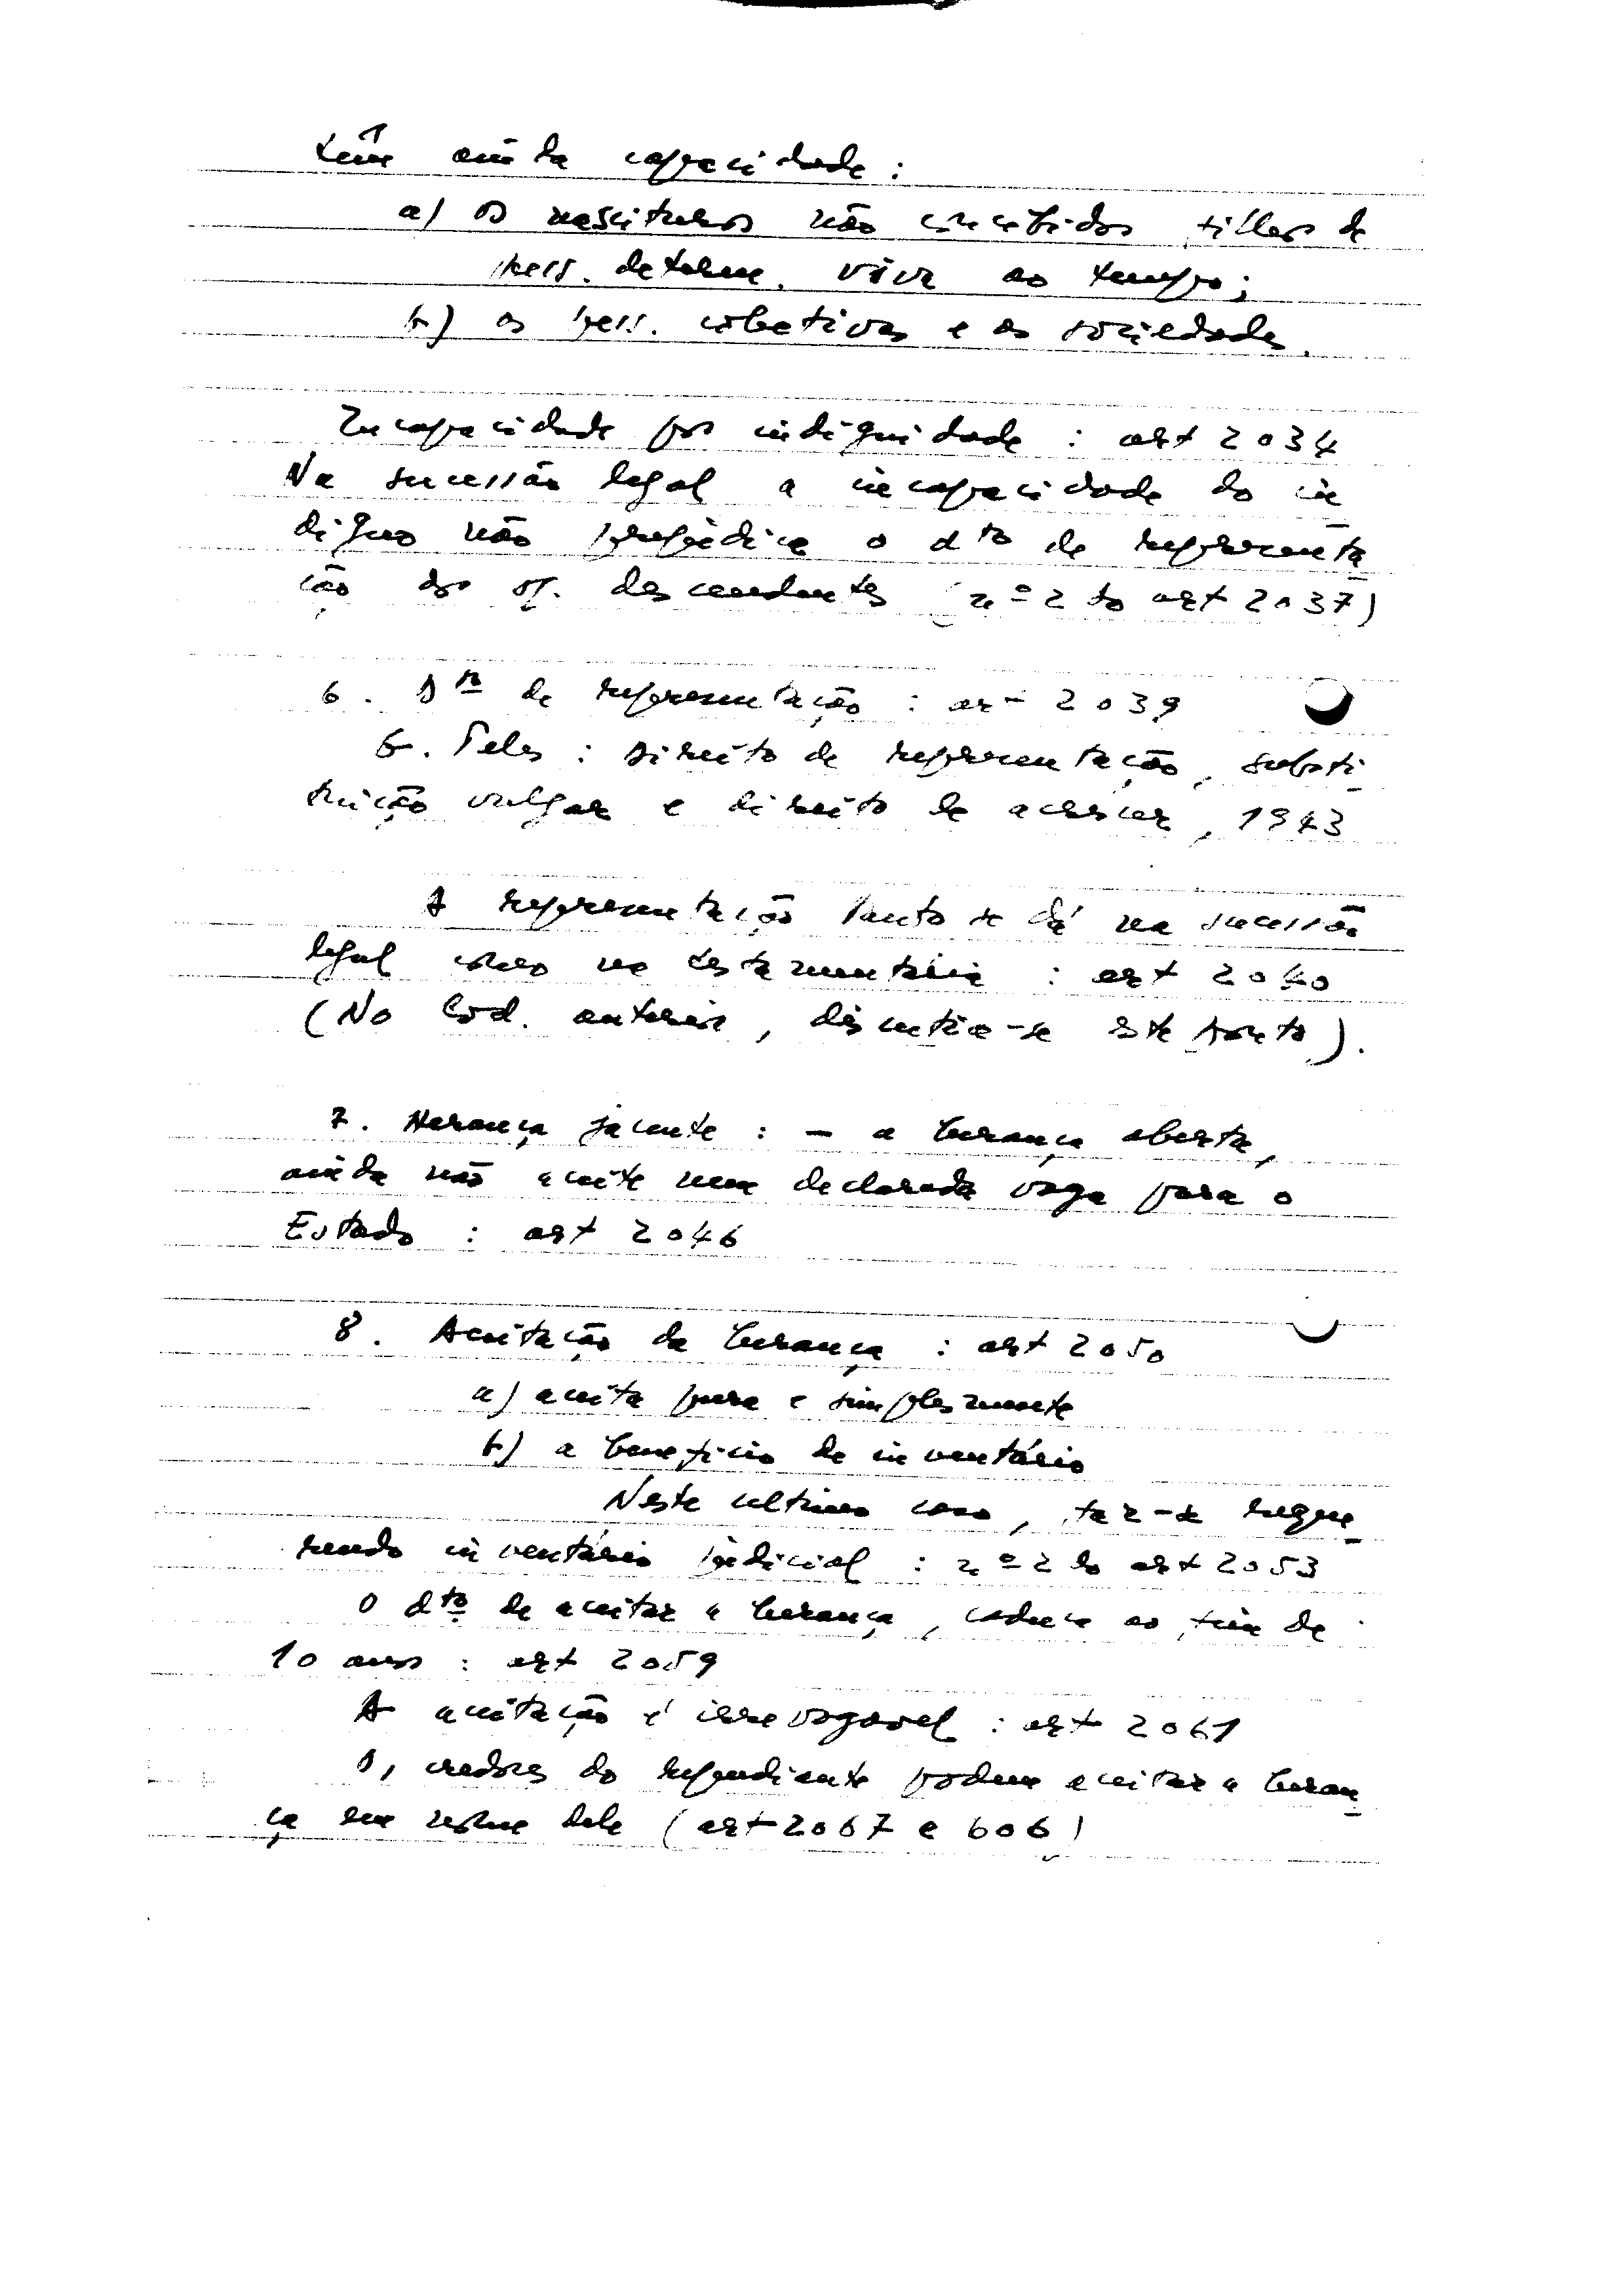 têm ainda capacidade :
a) os nascituros não concebidos, filhos de
pess. determ. viva ao tempo;
b) as pess. coletivas e as sociedades.
Incapacidade por indignidade : art 2034
Na sucessão legal a incapacidade do in
digno não prejudica o dto de representa
ção dos ss. descendentes (nº 2 do art 2037)
6. Dto de representação : art 2039
G. Teles : Direito de representação, substi
tuição vulgar e direito de acrescer, 1943
A representação tanto se dá na sucessão
legal como na testamentária : art 2040
(No Cod. anterior, discutia-se este ponto).
7. Herança jacente : - a herança aberta,
ainda não aceite nem declarada vaga para o
Estado : art 2046
8. Aceitação da herança : art 2050
a) aceita pura e simplesmente
b) a beneficio de inventário
Neste ultimo caso, faz-se reque
rendo inventário judicial : nº 2 do art 2053
O dto de aceitar a herança, caduca ao fim de
10 anos : art 2059
A aceitação é irrevogavel : art 2061
Os credores do repudiante podem aceitar a heran
ça em nome dele (art 2067 e 606)